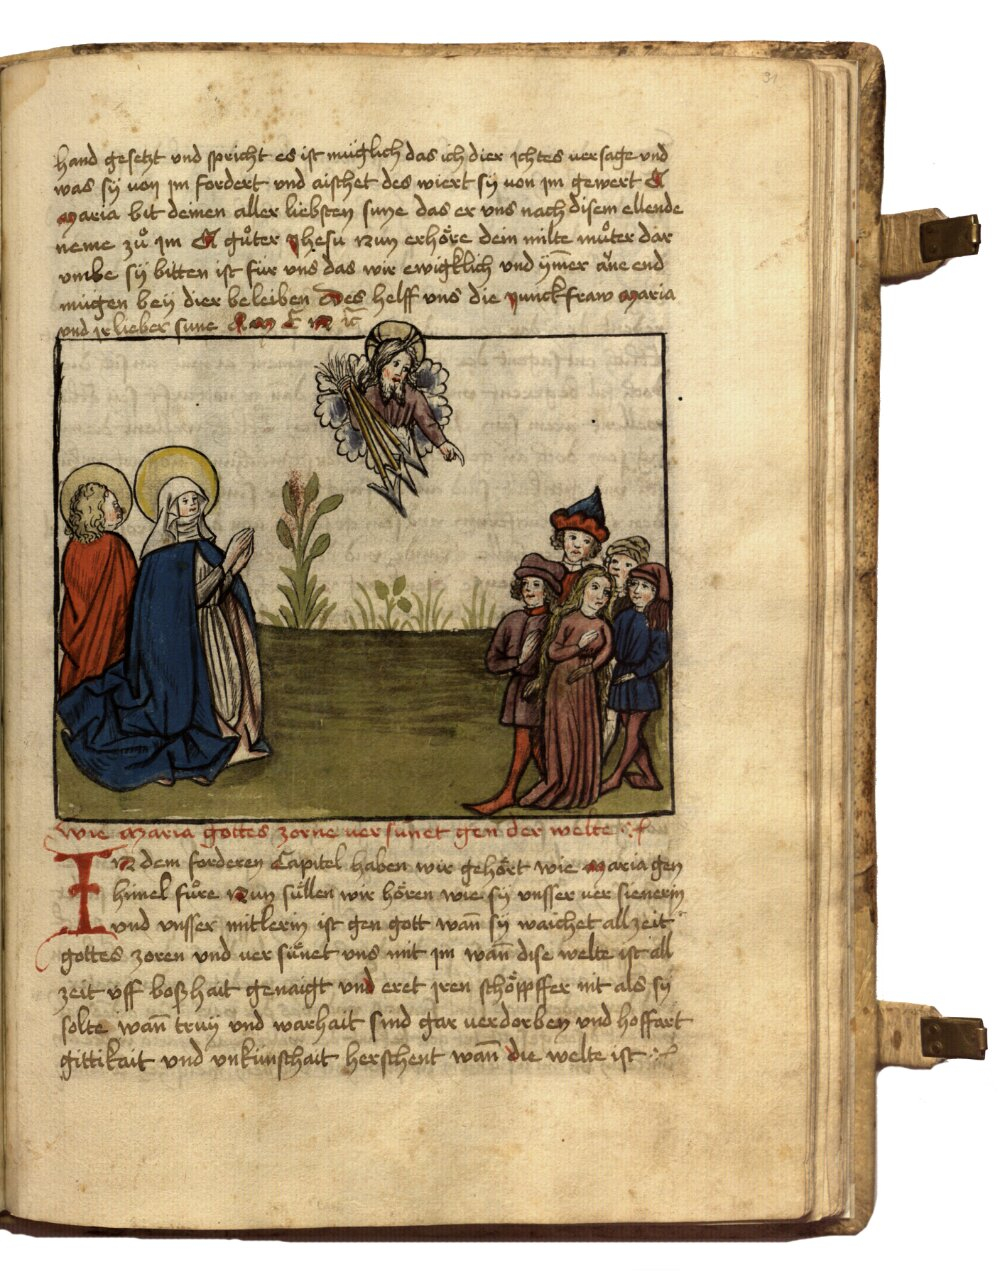 31
hand gesetzt vnd spricht es ist müglich das ich dier ichtes versage vnd
was sÿ von im fordert vnd aischet des wiert sÿ von im gewert O
Maria bit deinen aller liebsten sune das er vns nach disem ellende
neme zů im O gůter Jhesu Nun erhöre dein milte můter dar
vmbe sÿ bitten ist für vns das wir ewigklich vnd ÿmer āne end
mügen beÿ dier beleiben Des helff vns die Junckfraw Maria
vnd ir lieber sune A M E N
Wie Maria gottes zorne versünet gen der welte
IN dem forderen Capitel haben wir gehört wie Maria gen
himel füre Nun süllen wir hören wie sÿ vnsser versienerin
vnd vnsser mitlerin ist gen gott wañ sÿ waichet all zeit
gottes zoren vnd versünet vns mit im wañ dise welte ist all
zeit vff boßhait genaigt vnd eret iren schöpffer nit als sÿ
solte wañ truÿ vnd warhait sind gar verdorben vnd hoffart
gittikait vnd vnkünschait herschent wañ die welte ist